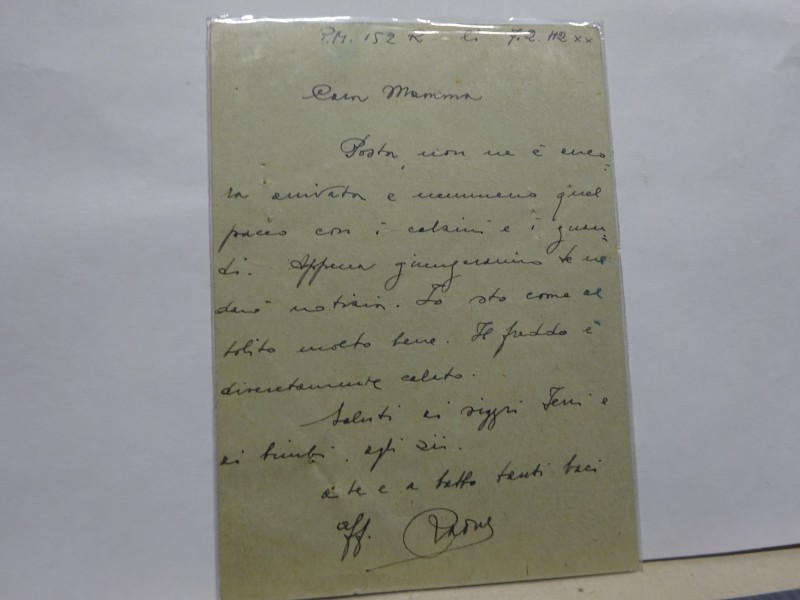 P.M. 152 R li 7.2.42 xx
Cara Mamma
Posta, non ne è anco=
ra arrivata e nemmeno quel
pacco con i calzini e i guan=
ti. Appena giungeranno te ne
darò notizia. Io sto come al
solito molto bene. Il freddo è
discretamente calato.
Saluti ai siggri Ferri e
ai bimbi, agli zii.
a te e a babbo tanti baci
aff.